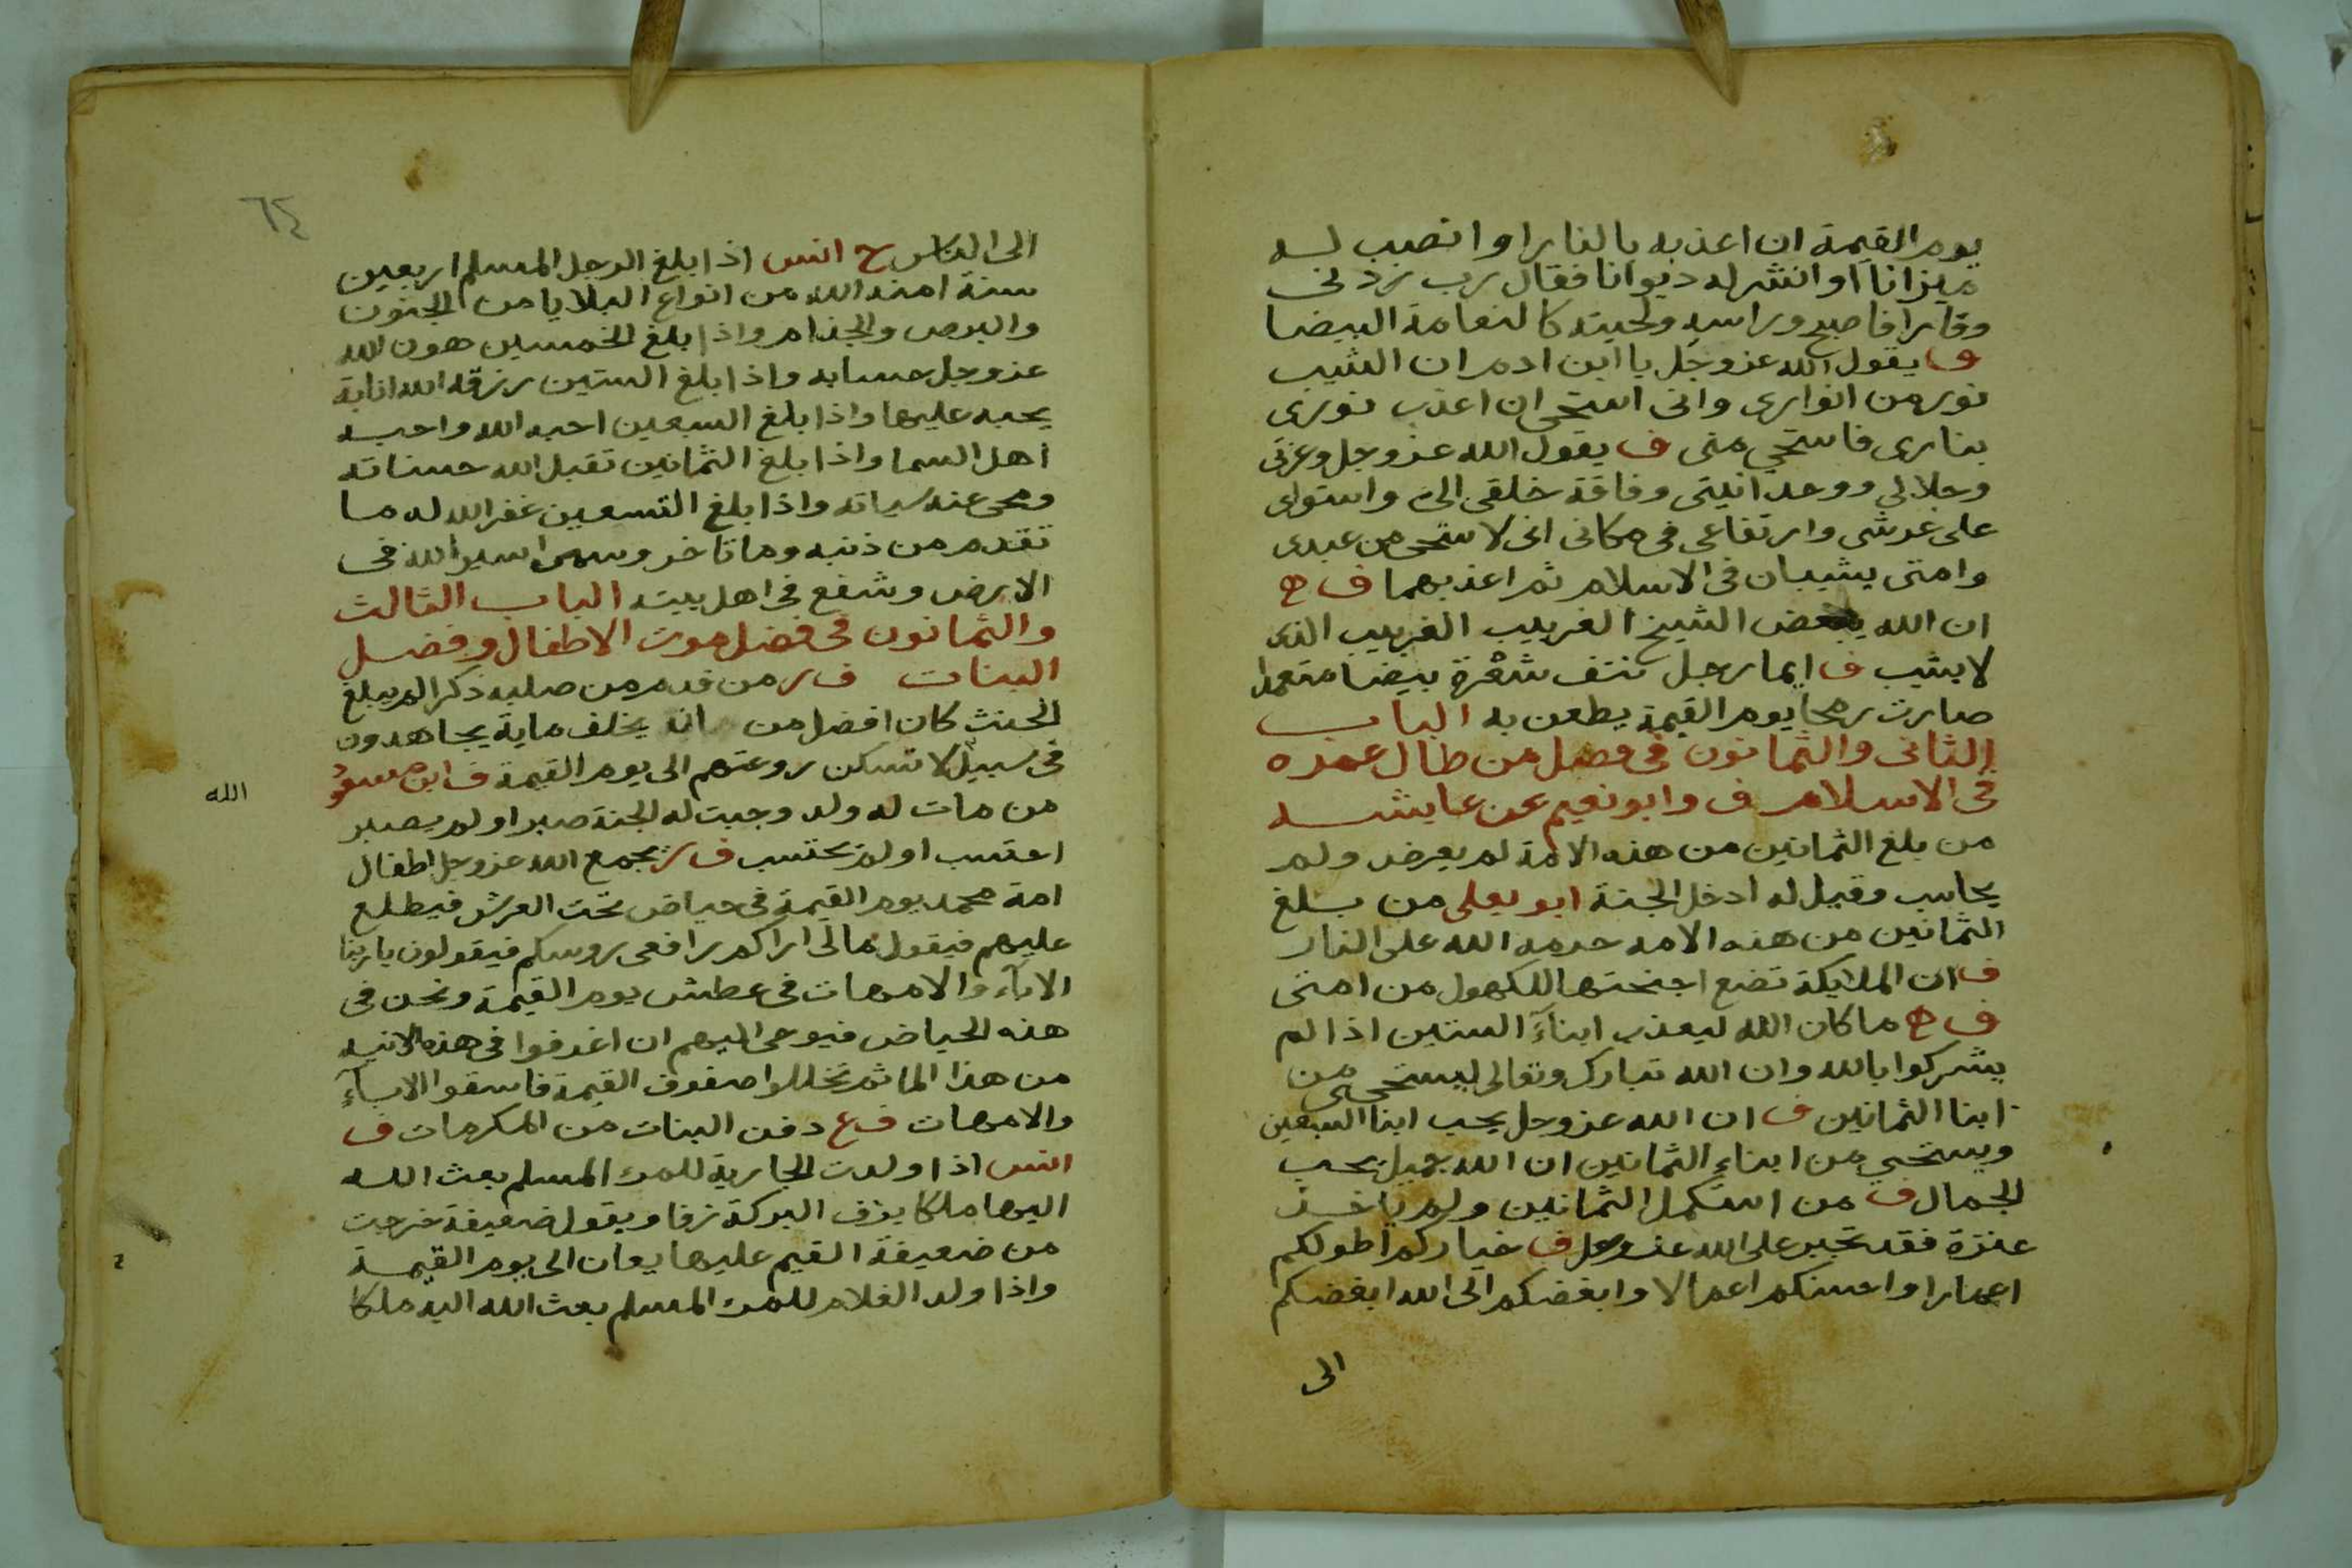 يوم القيمة ان اعذبه بالنار او انصب له
ميزانا او انشر له ديوانا فقال رب زدنى
وقارا فاصبح وراسه ولحيته كالنعامة البيضا
ف يقول الله عز وجل يا ابن ادم ان الشيب
نور من انوارى وانى استحى ان اعذب نورى
بنارى فاستحي منى ف يقول الله عز وجل وعزتى
وجلالي ووحدانيتى وفاقة خلقى الى واستواى
على عرشى وارتفاعى فى مكانى انى لاستحى من عبدى
وامتى يشيبان فى الاسلام ثم اعذبهما ف ه
ان الله يبغض الشيخ الغربيب الغربيب الذى
لا يشيب ف ايما رجل نتف شعرة بيضا متعمدا
صارت رمحا يوم القيمة يطعن به الباب
الثانى والثمانون فى فضل من طال عمره
فى الاسلام ف وابو نعيم عن عايشه
من بلغ الثمانين من هذه الامة لم يعرض ولم
يحاسب وقيل له ادخل الجنة ابو يعلى من بلغ
الثمانين من هذه الامه حرمه الله على النار
ف ان الملايكة تضع اجنحتها للكهول من امتى
ف ه ما كان الله ليعذب ابنآء الستين اذا لم
يشركوا بالله وان الله تبارك وتعالى ليستحيى من
ابنا الثمانين ف ان الله عز وجل يحب ابنا السبعين
ويستحيي من ابناء الثمانين ان الله جميل يحب
الجمال ف من استكمل الثمانين ولم ياخذ
عنزة فقد تجبر على الله عز وجل ف خياركم اطولكم
اعمارا واحسنكم اعمالا وابغضكم الى الله ابغضكم
الى
٦٤
الى الناس ح انس اذا بلغ الرجل المسلم اربعين
سنة امنه الله من انواع البلايا من الجنون
والبرص والجذام واذا بلغ الخمسين هون الله
عز وجل حسابه واذا بلغ الستين رزقه الله انابة
يحبه عليها واذا بلغ السبعين احبه الله واحبه
اهل السما واذا بلغ الثمانين تقبل الله حسناته
ومحى عنه سياته واذا بلغ التسعين غفر الله له ما
تقدم من ذنبه وما تاخر وسمى اسير الله فى
الارض وشفع فى اهل بيته الباب الثالث
والثمانون فى فضل موت الاطفال وفضل
البنات ف ر من قدم من صلبه ذكرا لم يبلغ
الحنث كان افضل من انه يخلف ماية يجاهدون
فى سبيل لا تسكن روعتهم الى يوم القيمة ف ابن مسعود
الله
من مات له ولد وجبت له الجنة صبر او لم يصبر
احتسب او لم يحتسب ف ر يجمع الله عز وجل اطفال
امة محمد يوم القيمة فى حياض تحت العرش فيطلع
عليهم فيقول مالى اراكم رافعى روسكم فيقولون يا ربنا
الابآء والامهات فى عطش يوم القيمة ونحن فى
هذه الحياض فيوحى اليهم ان اغرفوا فى هذه الانيه
من هذا الما ثم تخللوا صفوف القيمة فاسقوا الابآء
والامهات ف ع دفن البنات من المكرمات ف
انس اذا ولدت الجارية للمرء المسلم بعث الله
اليها ملكا يزف البركة زفا ويقول ضعيفة خرجت
من ضعيفة القيم عليها يعان الى يوم القيمة
واذا ولد الغلام للمرء المسلم بعث الله اليه ملكا